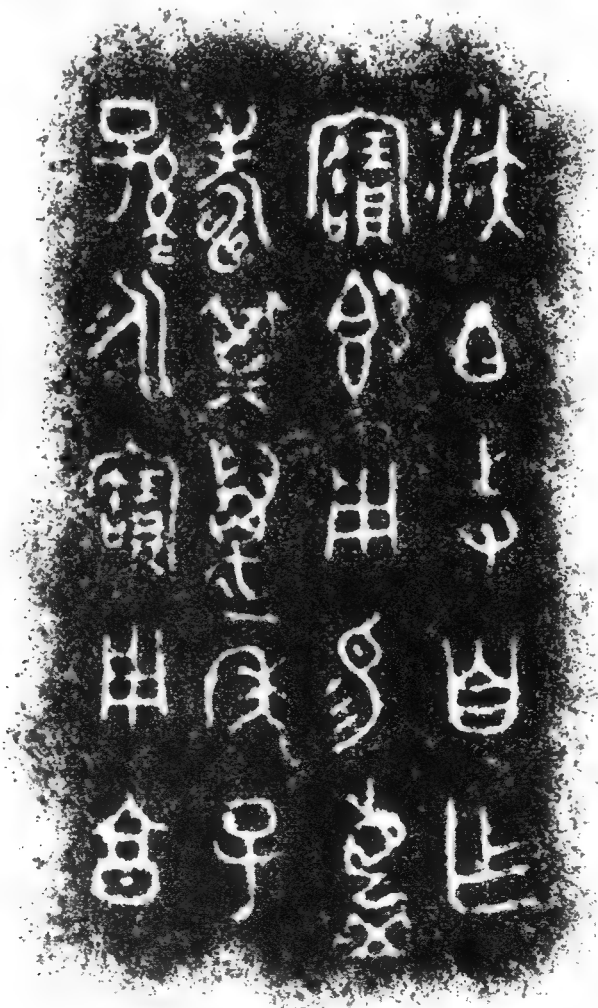 白寺自乍
寶𣪘用易眉
壽其萬年子
孫永寶用享